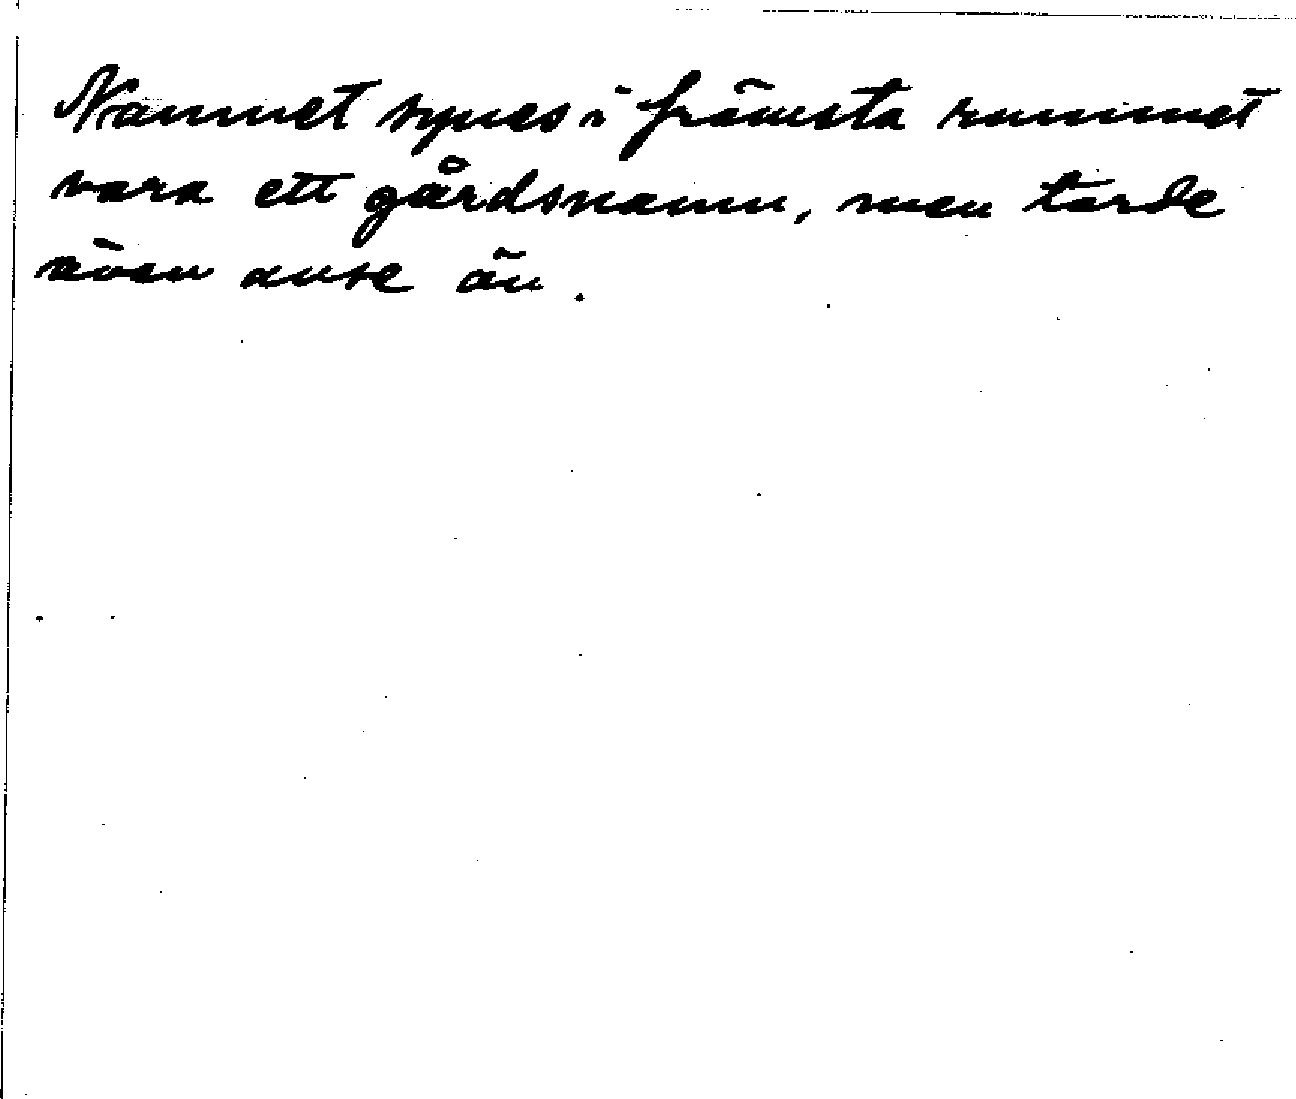 Namnet synes i främsta rummet
vara ett gårdsnamn, men torde
även avse än.